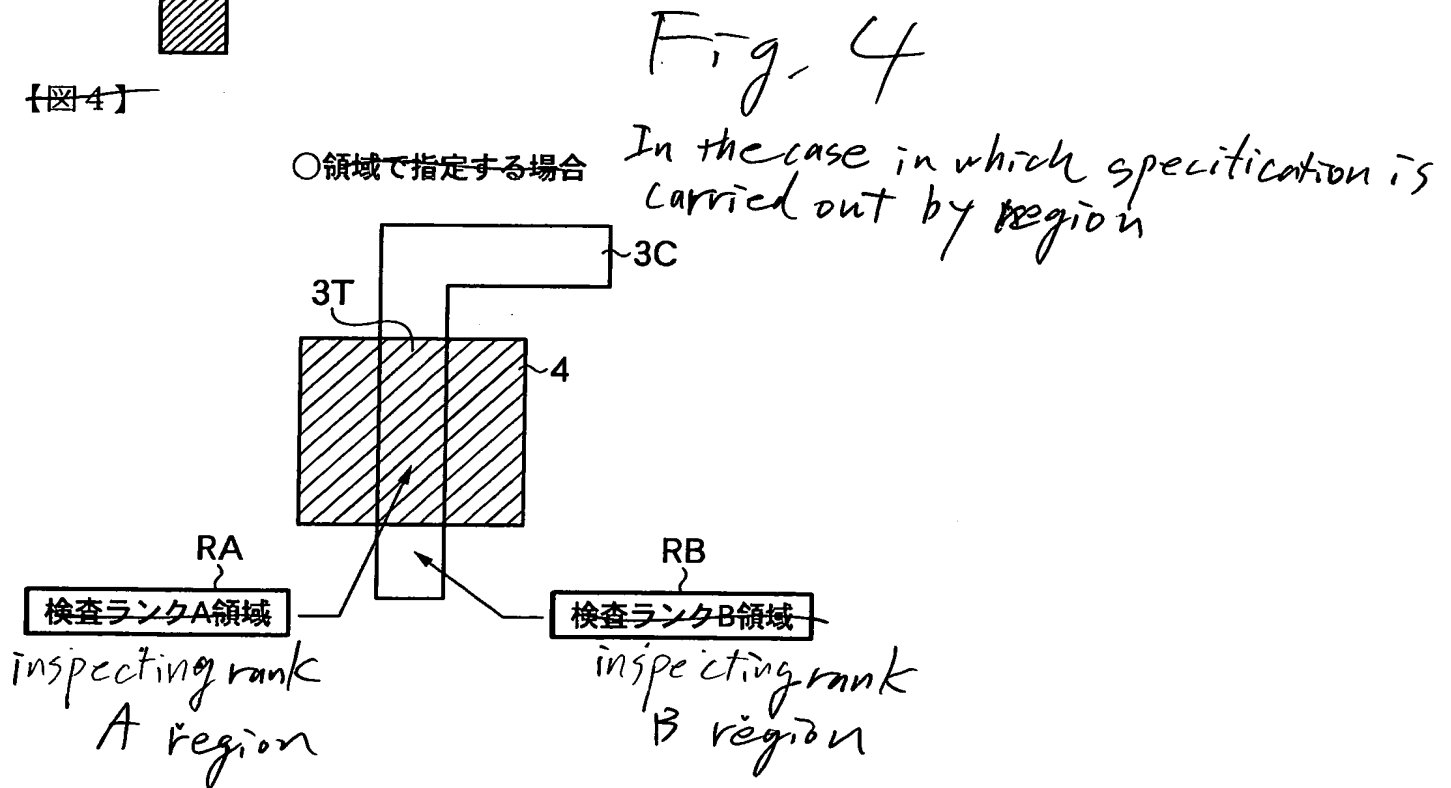 Fig. 4
【図4】
○領域で指定する場合
In the case in which specification is
carried out by region
3C
3T
4
RA
RB
検査ランクA領域
検査ランクB領域
inspecting rank
A region
inspecting rank
B region